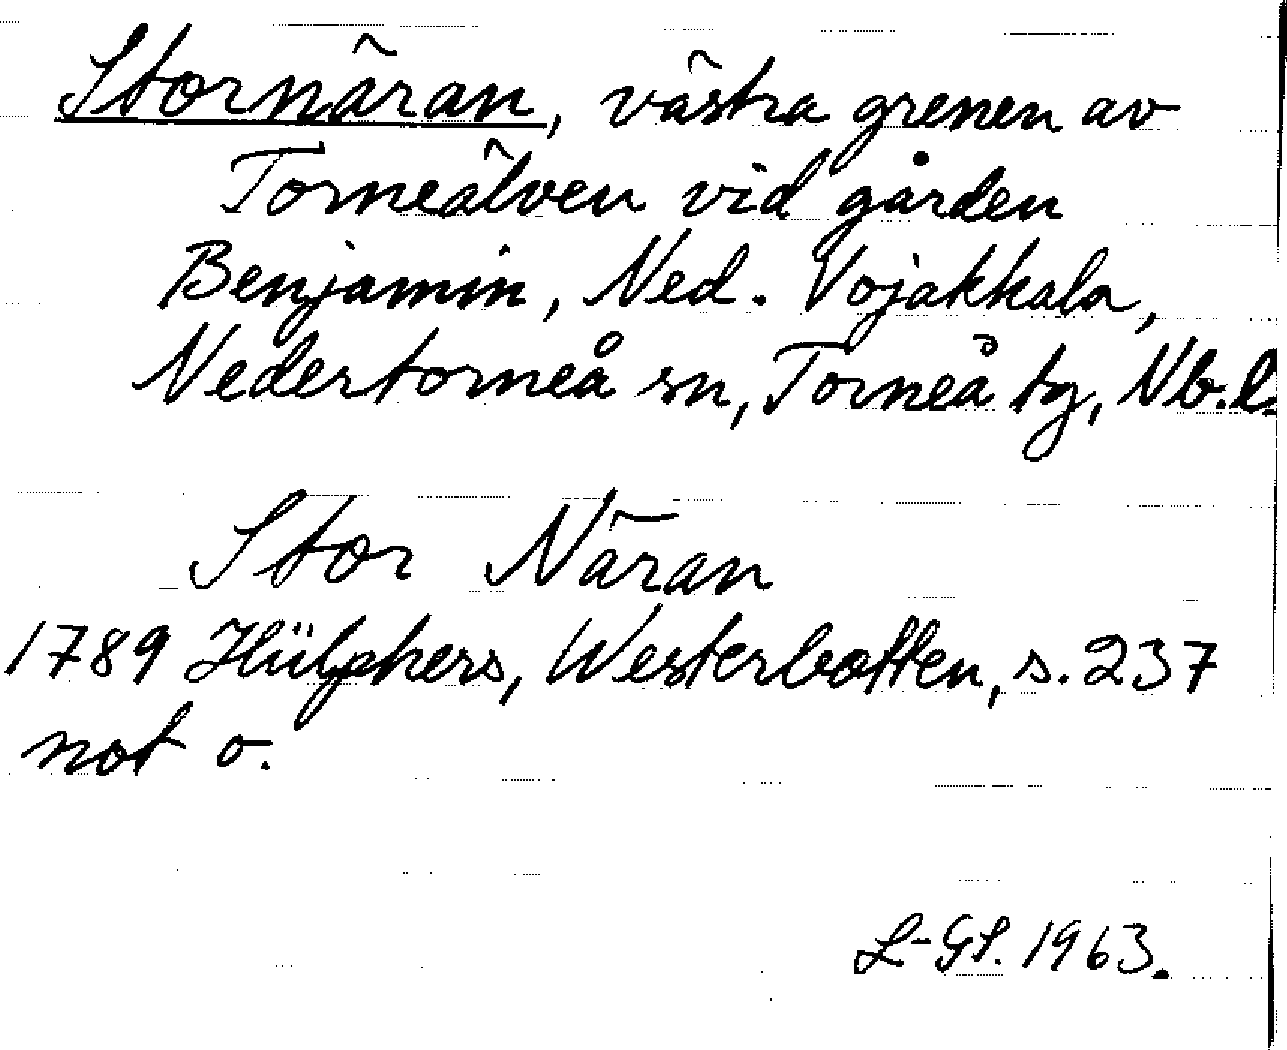 Stornäran, västra grenen av
Torneälven vid gården
Benjamin, Ned. Vojakkala,
Nedertorneå sn, Torneå tg, Nb.l.
Stor Näran
1789 Hülphers, Westerbotten, s. 237
not o.
L-GS. 1963.